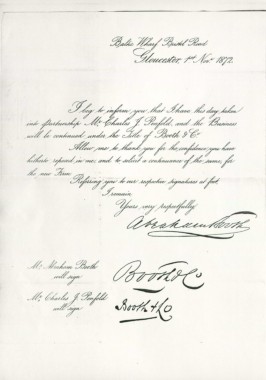 Baker's Wharf Bristol Road
Gloucester, 1st Novr 1872.
I beg to inform you that I have this day taken
into partnership Mr Charles J. Penfold, and the Business
will be continued under the Title of Booth & Co
Allow me to thank you for the confidence you have
hitherto reposed in me, and to solicit a continuance of the same, for
the new Firm.
Referring you to our respective signatures at foot,
I remain,
Yours very respectfully,
Abraham Booth
Mr Abraham Booth
will sign
Booth & Co
Mr Charles J. Penfold
will sign
Booth & Co